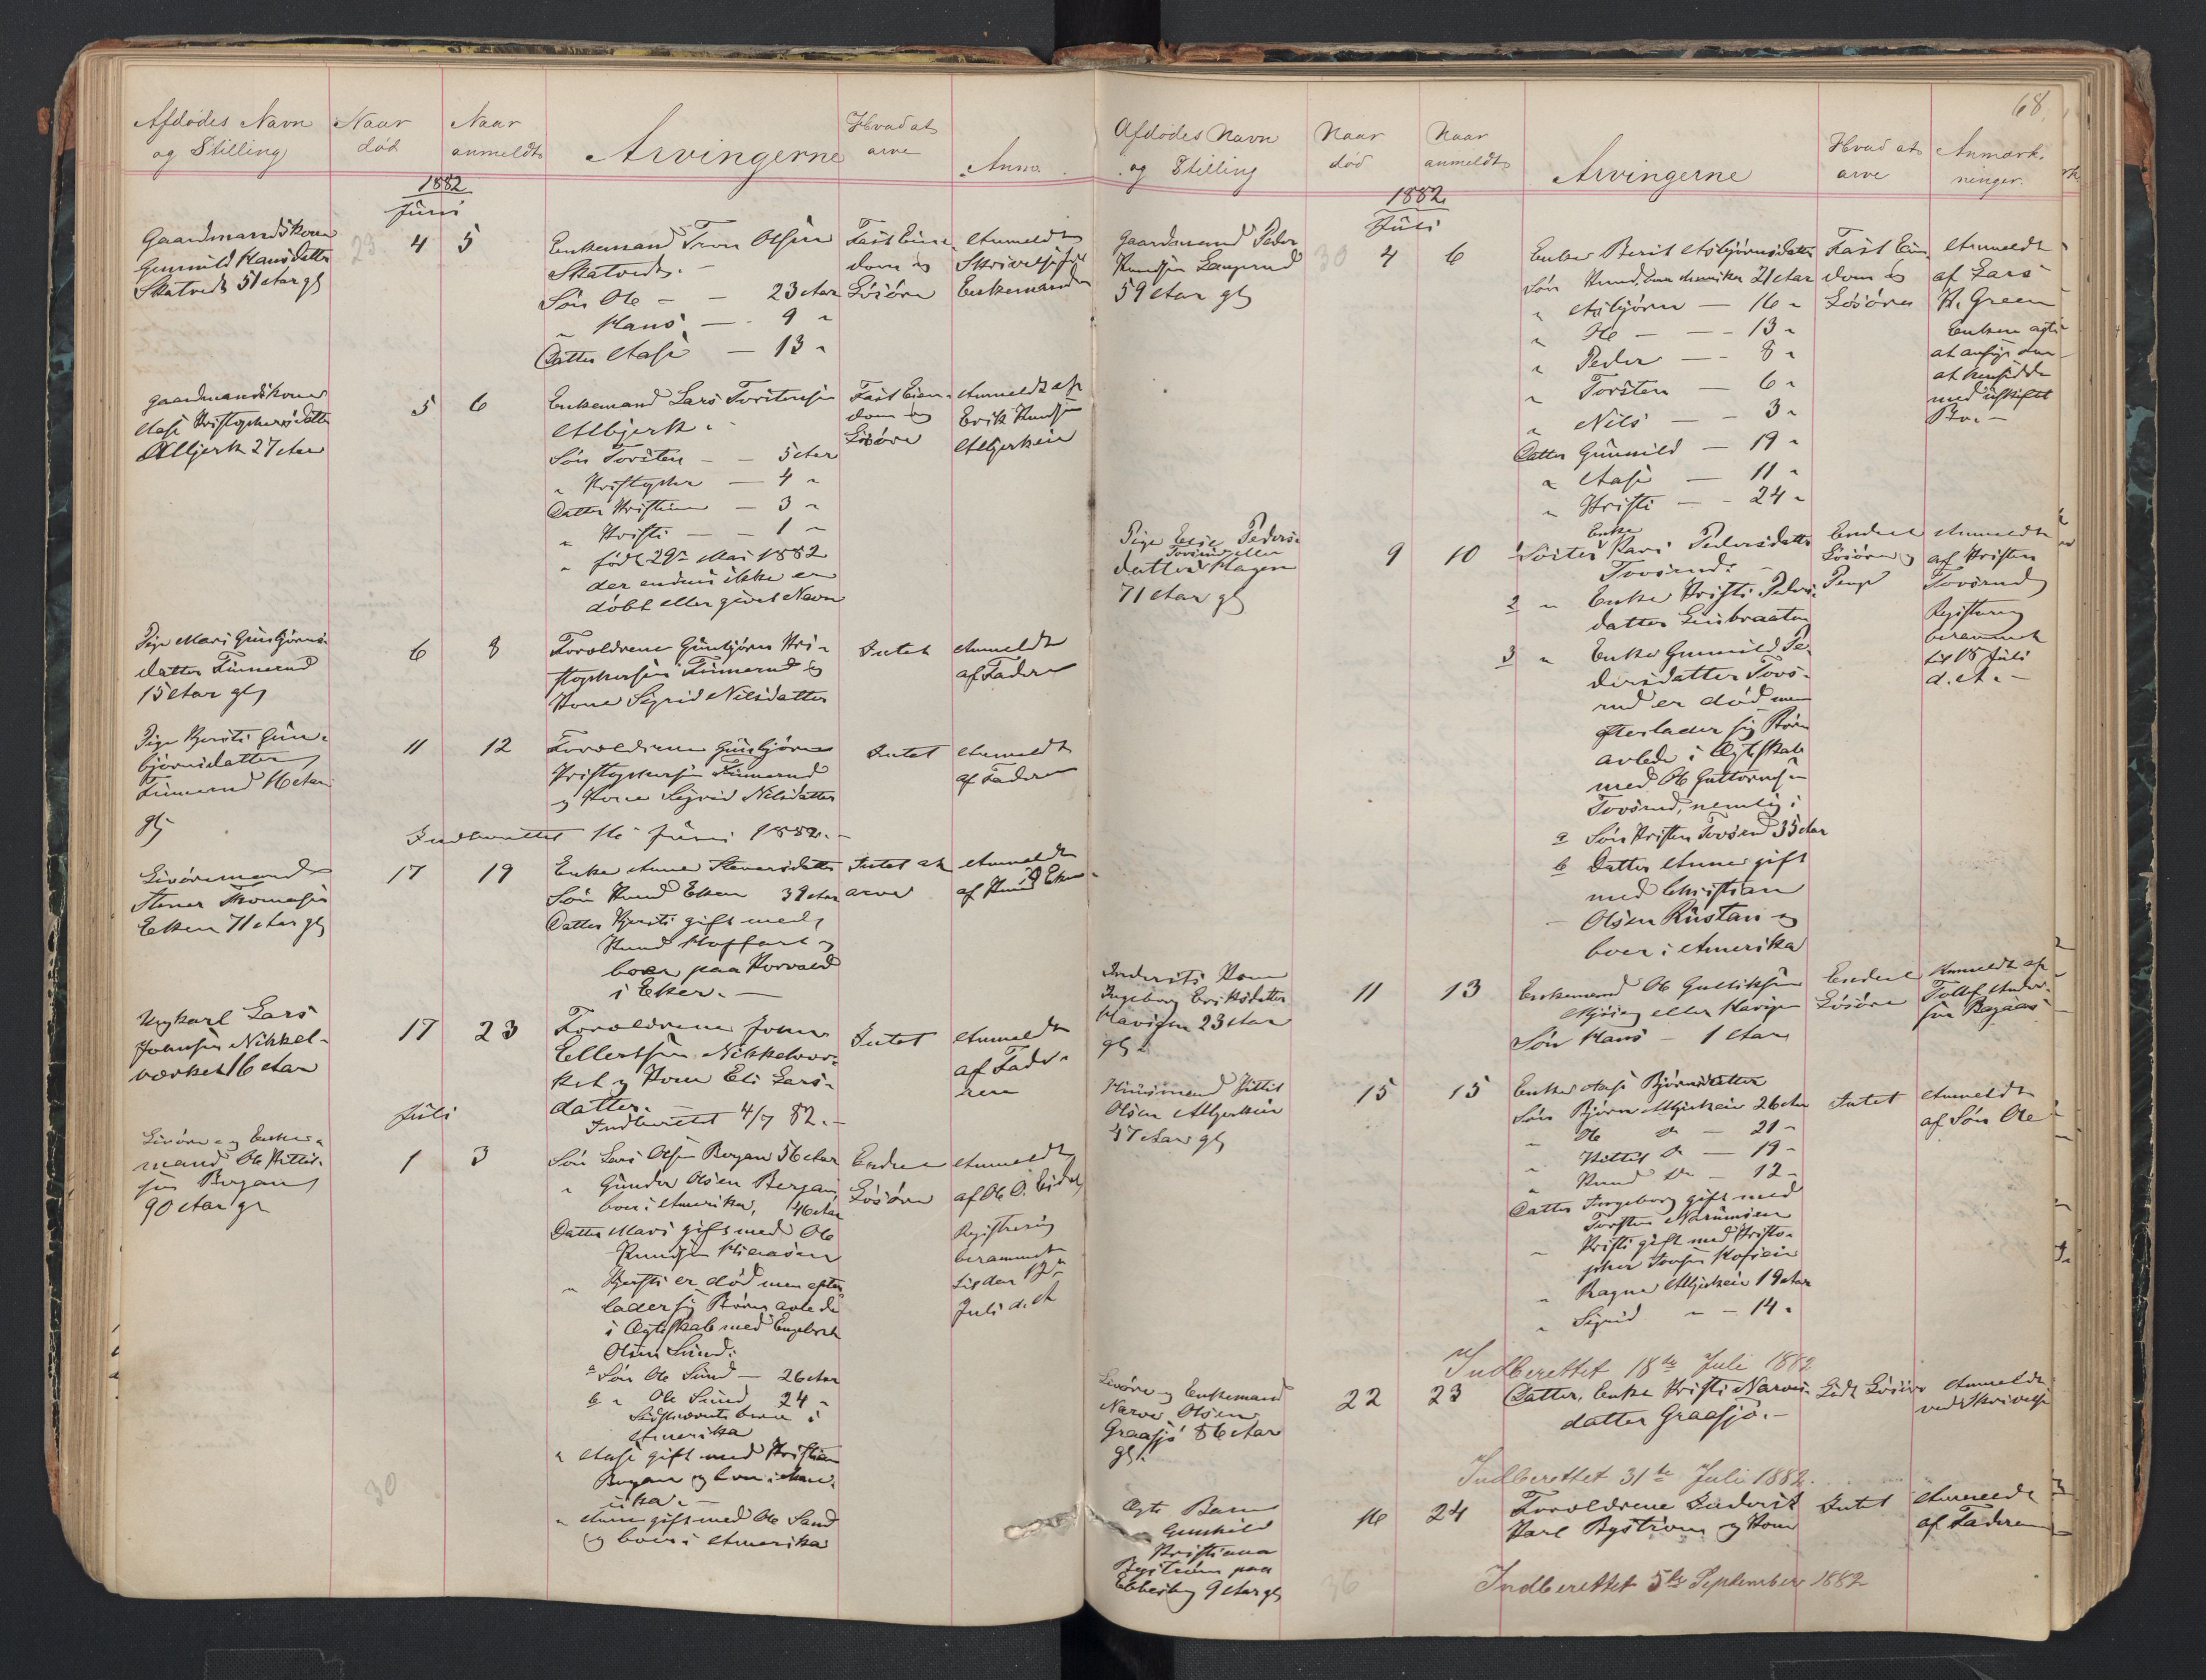 Afdødes Navn
og Stilling
Naar
død
Naar
anmeldt
Arvingerne
Hvad at
arve
Anm.
1882
Juni
Gaardmandskone
Gunnild Hansdatter
Skatvedt 51 Aar gl
23
4
5
Enkemand Tron Olsen
Skatvedt. –
Søn Ole – – 23 Aar
" Hans – – 9 "
Datter Aase – 13 "
Fast Eien-
dom og
Løsøre
Anmeldt
Skriveligt
Enkemanden
Gaardmandskone
Aase Kristophersdatter
Albjerk 27 Aar
5
6
Enkemand Lars Torstensen
Albjerk.
Søn Torsten – – 5 Aar
" Kristopher – 4 "
Datter Kristine – 3 "
" Kristi – – 1 "
" født 29de Mai 1882
der endnu ikke er
døbt eller givet Navn
Fast Eien-
dom og
Løsøre
Anmeldt af
Erik Knudsen
Albjerkeie
Pige Mari Gunbjørns-
datter Finnerud
15 Aar gl
6
8
Forældrene Gunbjørn Kri-
stophersen Finnerud og
Kone Sigrid Nilsdatter
Intet
Anmeldt
af Faderen
Pige Kjersti Gun-
bjørnsdatter
Finnerud 16 Aar
gl
11
12
Forældrene Gunbjørn
Kristophersen Finnerud
og Kone Sigrid Nilsdatter
Intet
Anmeldt
af Faderen
Indberettet 16 Juni 1882. –
Livøremand
Stener Thomasen
Eken 71 Aar gl
17
19
Enke Anne Stenersdatter
Søn Knud Eken 39 Aar
Datter Kjersti gift med
Knud Hoffart og
boer paa Horvald
i Eker. –
Intet at
arve
Anmeldt
af Knud Eken
Ungkarl Lars
Johnsen Nikkel-
værket 16 Aar
17
23
Forældrene John
Ellertsen Nikkelvær-
ket og Kone Eli Lars-
datter.
Intet
Anmeldt
af Fade-
ren
Juli
Indberettet 4/7 82. –
Livøre- og Enke-
mand Ole Kittel-
sen Bergan
90 Aar gl
1
3
Søn Lars Olsen Bergan 56 Aar
" Gunder Olsen Bergan
boer i Amerika, 46 Aar
Datter Mari gift med Ole
Knudsen Hiaasen
" Kjersti er død men efter
lader sig Børn avlede
i Ægteskab med Engebret
Olsen Sund:
a Søn Ole Sund – 26 Aar
b " Ole Sund 24 "
Sidstnævnte boer i
Amerika
" Aase gift med Kristian
Bergan og boer i Ame-
rika. –
" Anne gift med Ole Sand
og boer i Amerika
Endel
Løsøre
Anmeldt
af Ole O. Eidal
Registrering
berammet
til den 12te
Juli d. A
30
68.
Afdødes Navn
og Stilling
Naar
død
Naar
anmeldt
Arvingerne
Hvad at
arve
Anmærk-
ninger.
1882
Juli
Gaardmand Peder
Knudsen Langerud
59 Aar gl
30
4
6
Enke Berit Asbjørnsdatter
Søn Knud, boer Amerika 21 Aar
" Asbjørn – 16 "
" Ole – – – 13 "
" Peder – – 8 "
" Torsten – 6 "
" Nils – – 3 "
Datter Gunnild – 19 "
" Aase – 11 "
" Kristi – – 24 "
Fast Eien
dom og
Løsøre
Anmeldt
af Lars
K. Green
Enken agter
at ansøge om
at hensidde
med uskiftet
Bo. –
Pige Elsie Peders-
datter Hagen
71 Aar gl
9
10
1 Søster Enke Kari Pedersdatter
Tovsrud.
2 " Enke Kristi Peders-
datter Linbraaten
3 " Enke Gunnild Pe-
dersdatter Tovs-
rud er død men
efterlader sig Børn
avlede i Ægteskab
med Ole Guttormsen
Tovsrud, nemlig:
a Søn Kristen Tovsrud 35 Aar
b Datter Anne gift
med Christian
Olsen Rustan og
boer i Amerika
Endel
Løsøre og
Penge
Anmeldt
af Kristen
Tovsrud
Registrering
berammet
til 18 Juli
d. A. –
Inderst Kone
Ingeborg Eriksdatter
Haviggen 23 Aar
gl
11
13
Enkemand Ole Gulliksen
eller Haviggen
Søn Hans – 1 Aar
Endel
Løsøre
Anmeldt af
Tollef Ander-
sen Bagaas
Husmand Kittil
Olsen Albjerkeie
57 Aar gl
15
15
Enke Aase Bjørnsdatter
Søn Bjørn Albjerkeie 26 Aar
" Ole Do – 21 "
" Kittil Do – 19 "
" Knud Do – 12 "
Datter Ingeborg gift med
Torsten Narumsen
" Kristi gift med Kristo-
pher Hofseie
" Ragne Albjerkeie 19 Aar
" Sigrid " – 14 "
Intet
Anmeldt
af Søn Ole
Indberettet 18de Juli 1882
Livøre- og Enkemand
Narve Olsen
Graasjø 86 Aar
gl.
22
23
Datter, Enke Kristi Narves-
datter Graasjø. –
Lidt Løsøre
Anmeldt
ved Skrivelse
Indberettet 31te Juli 1882.
Ægte Barn
Gunhild
Kristiana
Byström paa
9 Aar gl
36
16
24
Forældrene Inderst
Karl Byström og Kone
Intet
Anmeldt
af Faderen
Indberettet 5te September 1882